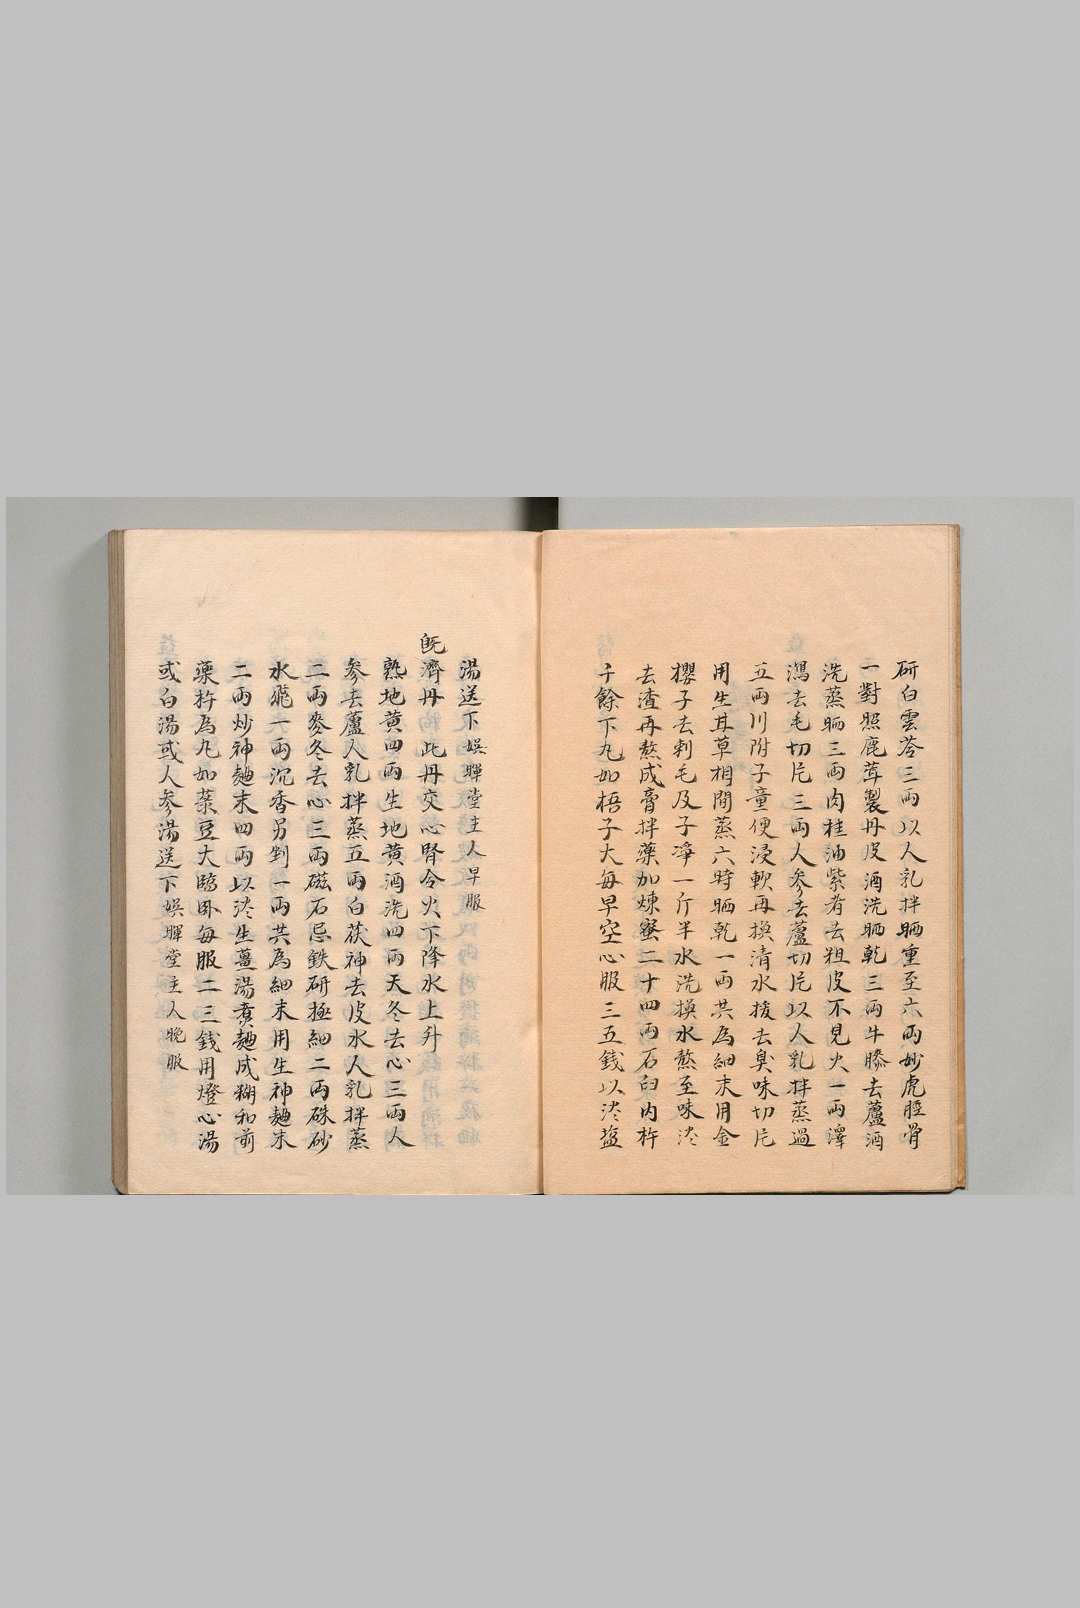 研白雲苓三両以人乳拌晒重至六両妙虎脛骨
一對照鹿茸製丹皮酒洗晒乾三両牛膝去蘆酒
洗蒸晒三両肉桂油紫者去粗皮不見火一両澤
瀉去毛切片三両人参去蘆切片以人乳拌蒸過
五両川附子童便浸軟再換清水拔去臭味切片
用生甘草相間蒸六時晒乾一両共為細末用金
櫻子去刺毛及子凈一斤半水洗換水熬至味淡
去渣再熬成膏拌藥加煉蜜二十四両石臼內杵
千餘下丸如梧子大每早空心服三五錢以淡盐
湯送下娛暉堂主人早服
既濟丹 此丹交心腎令火下降水上升
熟地黄四両生地黄酒洗四両天冬去心三両人
參去蘆人乳拌蒸五両白茯神去皮水人乳拌蒸
二両麥冬去心三両磁石忌鉄研極細二両硃砂
水飛一両沉香另剉一両共為細末用生神麯末
二両炒神麯末四両以淡生薑湯煮麯成糊和前
藥杵為丸如菉豆大臨卧每服二三錢用燈心湯
或白湯或人參湯送下娛暉堂主人晚服